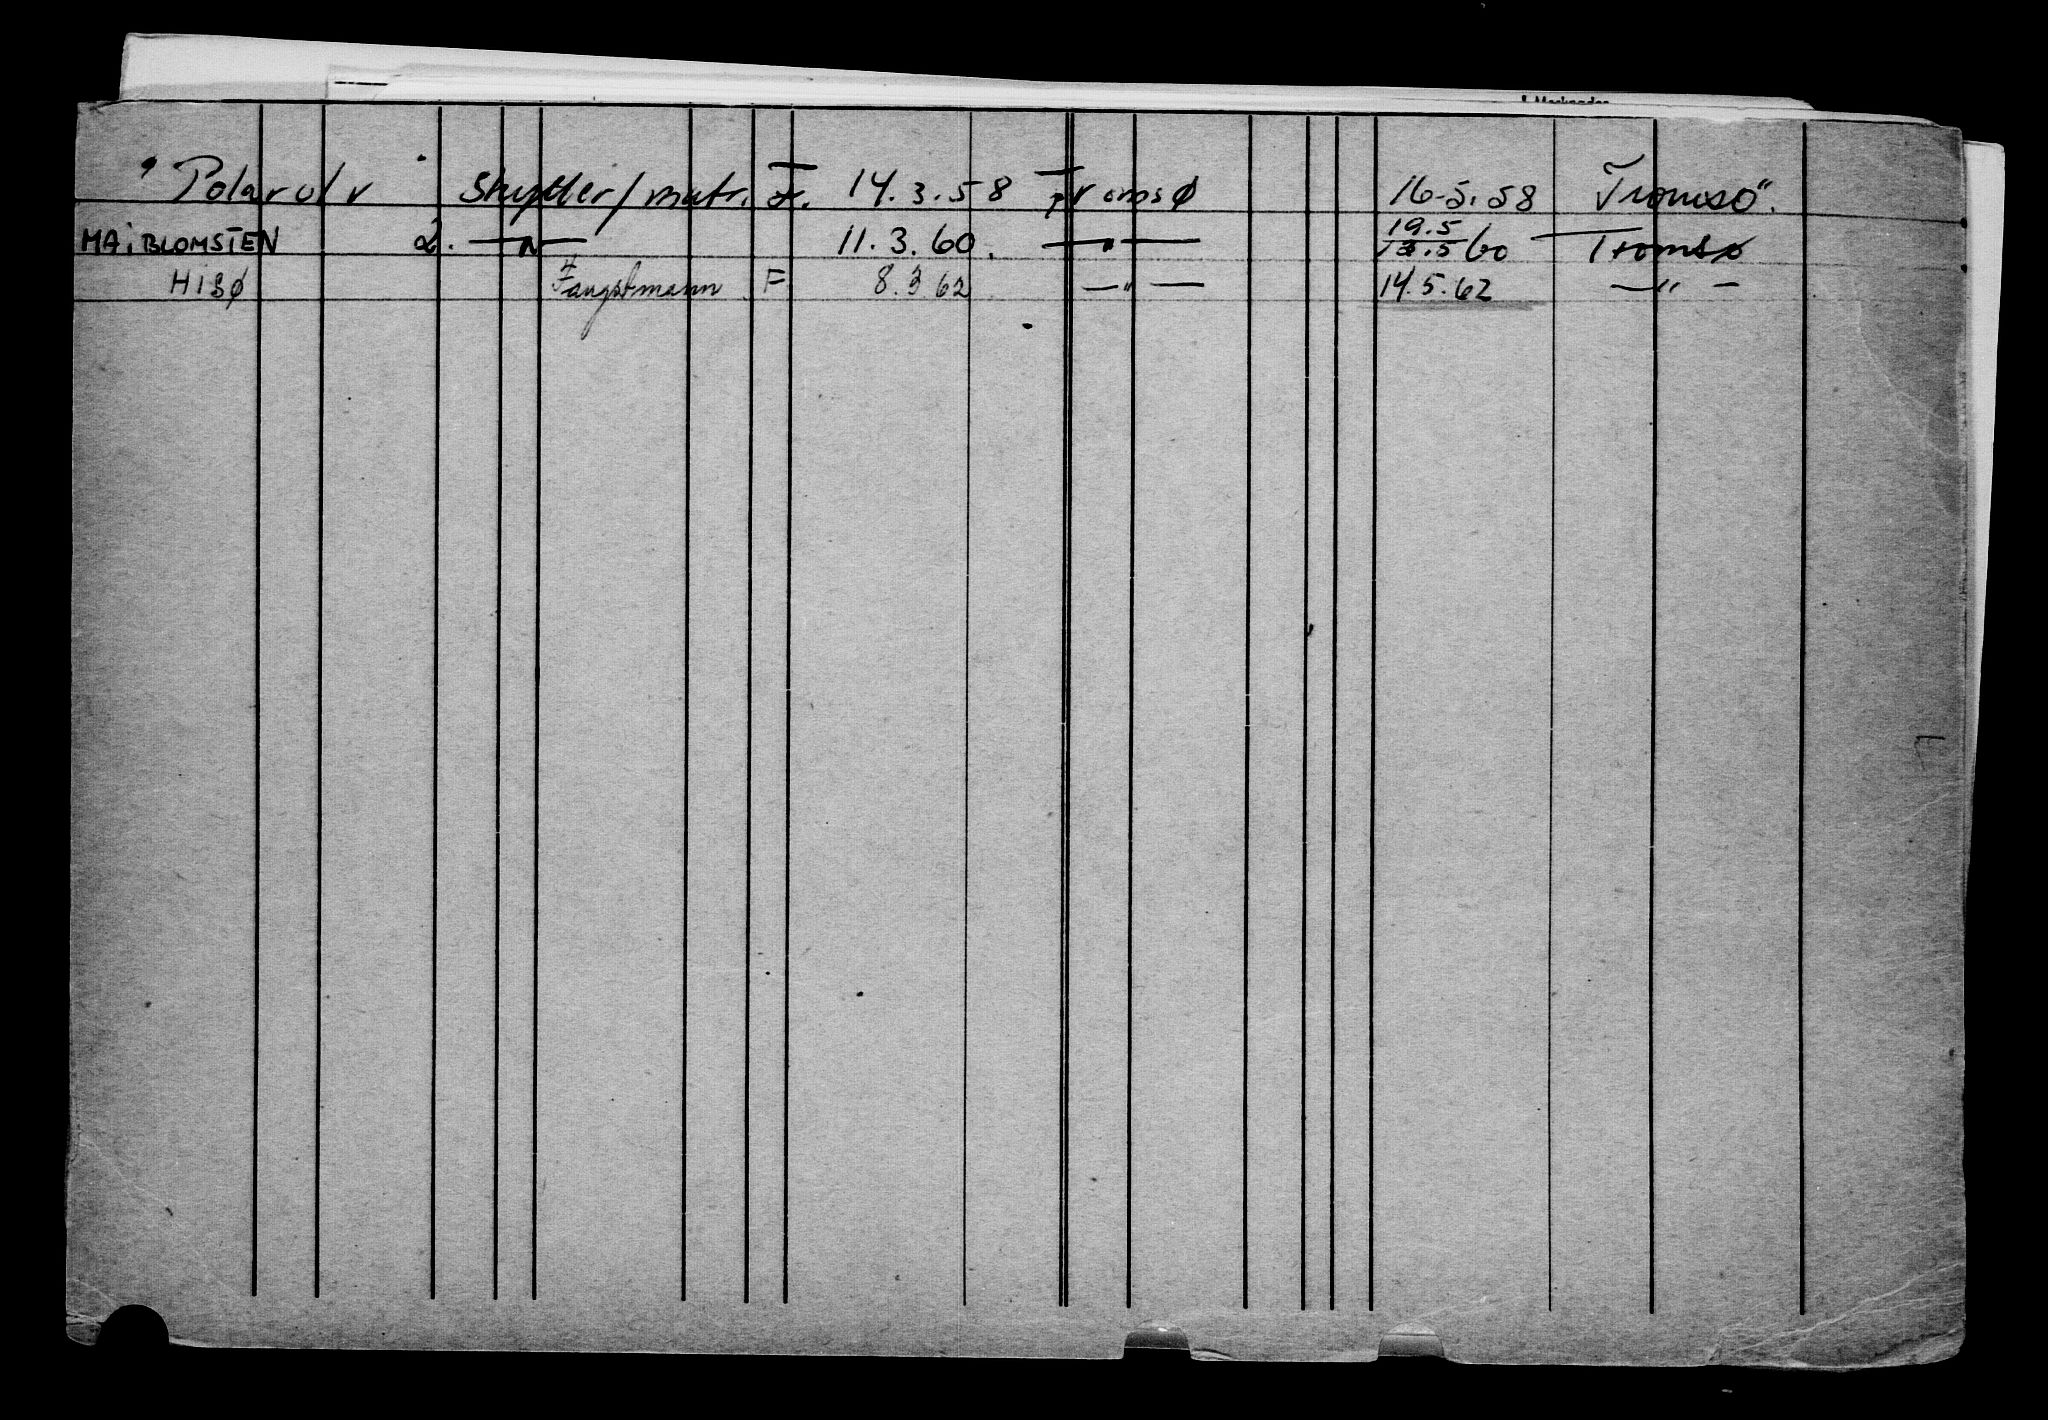 "Polarulv" Skytter/matr. F. 14.3.58 Tromsø 16-5.58 Tromsö".
MAiBLOMSTEN 2. —"— 11.3.60. —"— 19.5 60 Tromsø
HISØ Fangstmann F 8.3 62 —"— 14.5.62 —"—